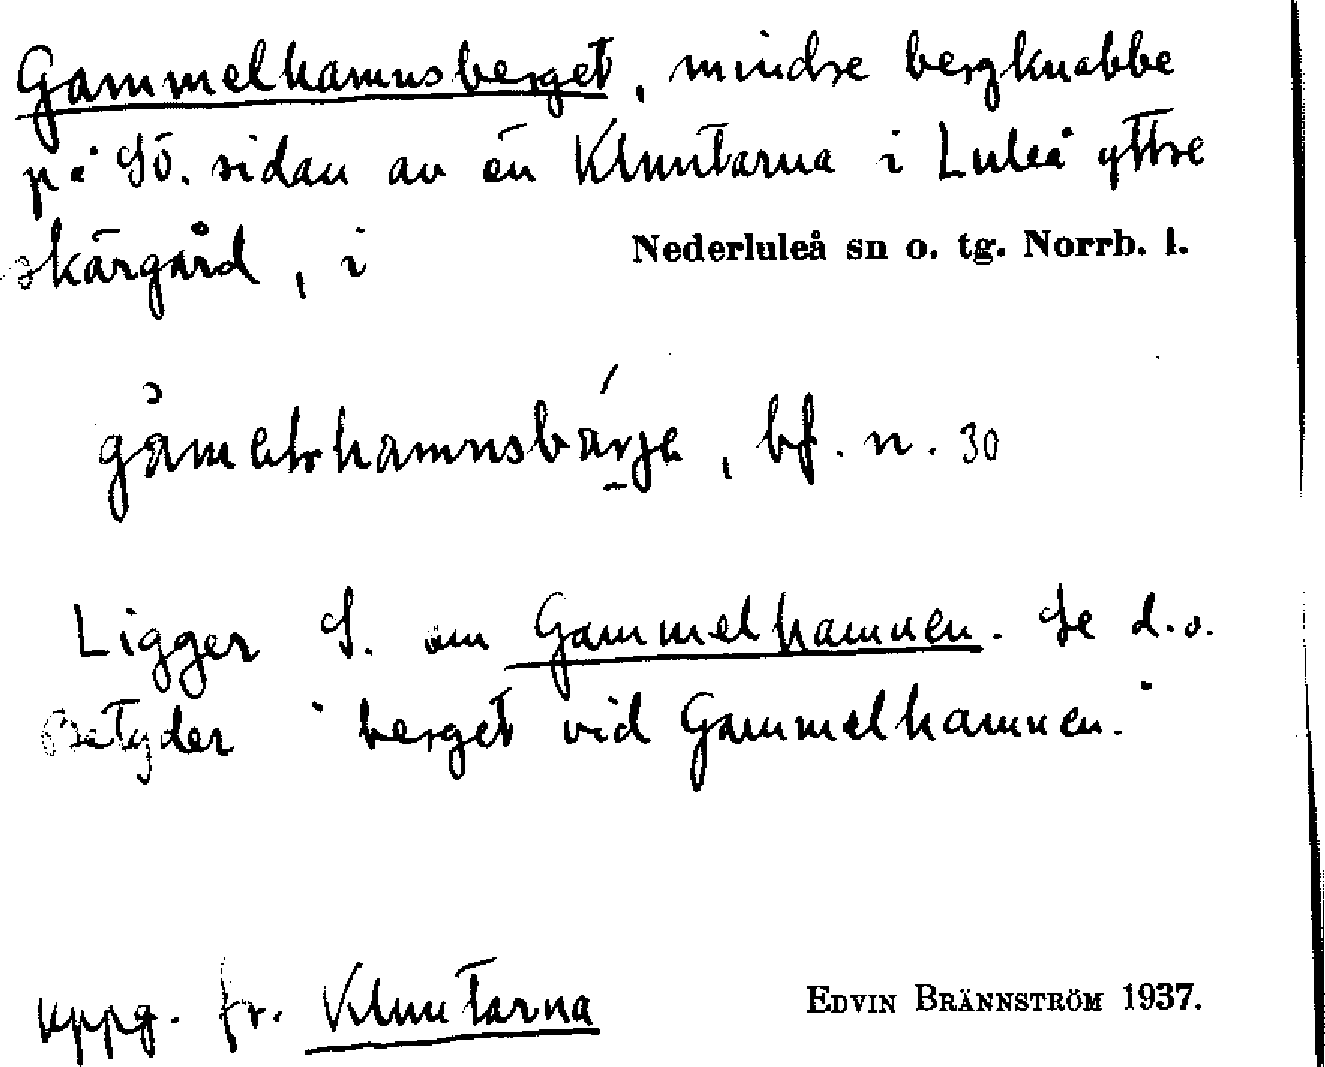 Gammelhamnsberget, mindre bergknabbe
på SÖ. sidan av ön Kluntarna i Luleå yttre
skärgård, i Nederluleå sn o. tg. Norrb. l.
bf. n. 30
Ligger S. om Gammelhamnen. Se d.o.
Betyder "berget vid Gammelhamnen."
uppg. fr. Kluntarna EDVIN BRÄNNSTRÖM 1937.